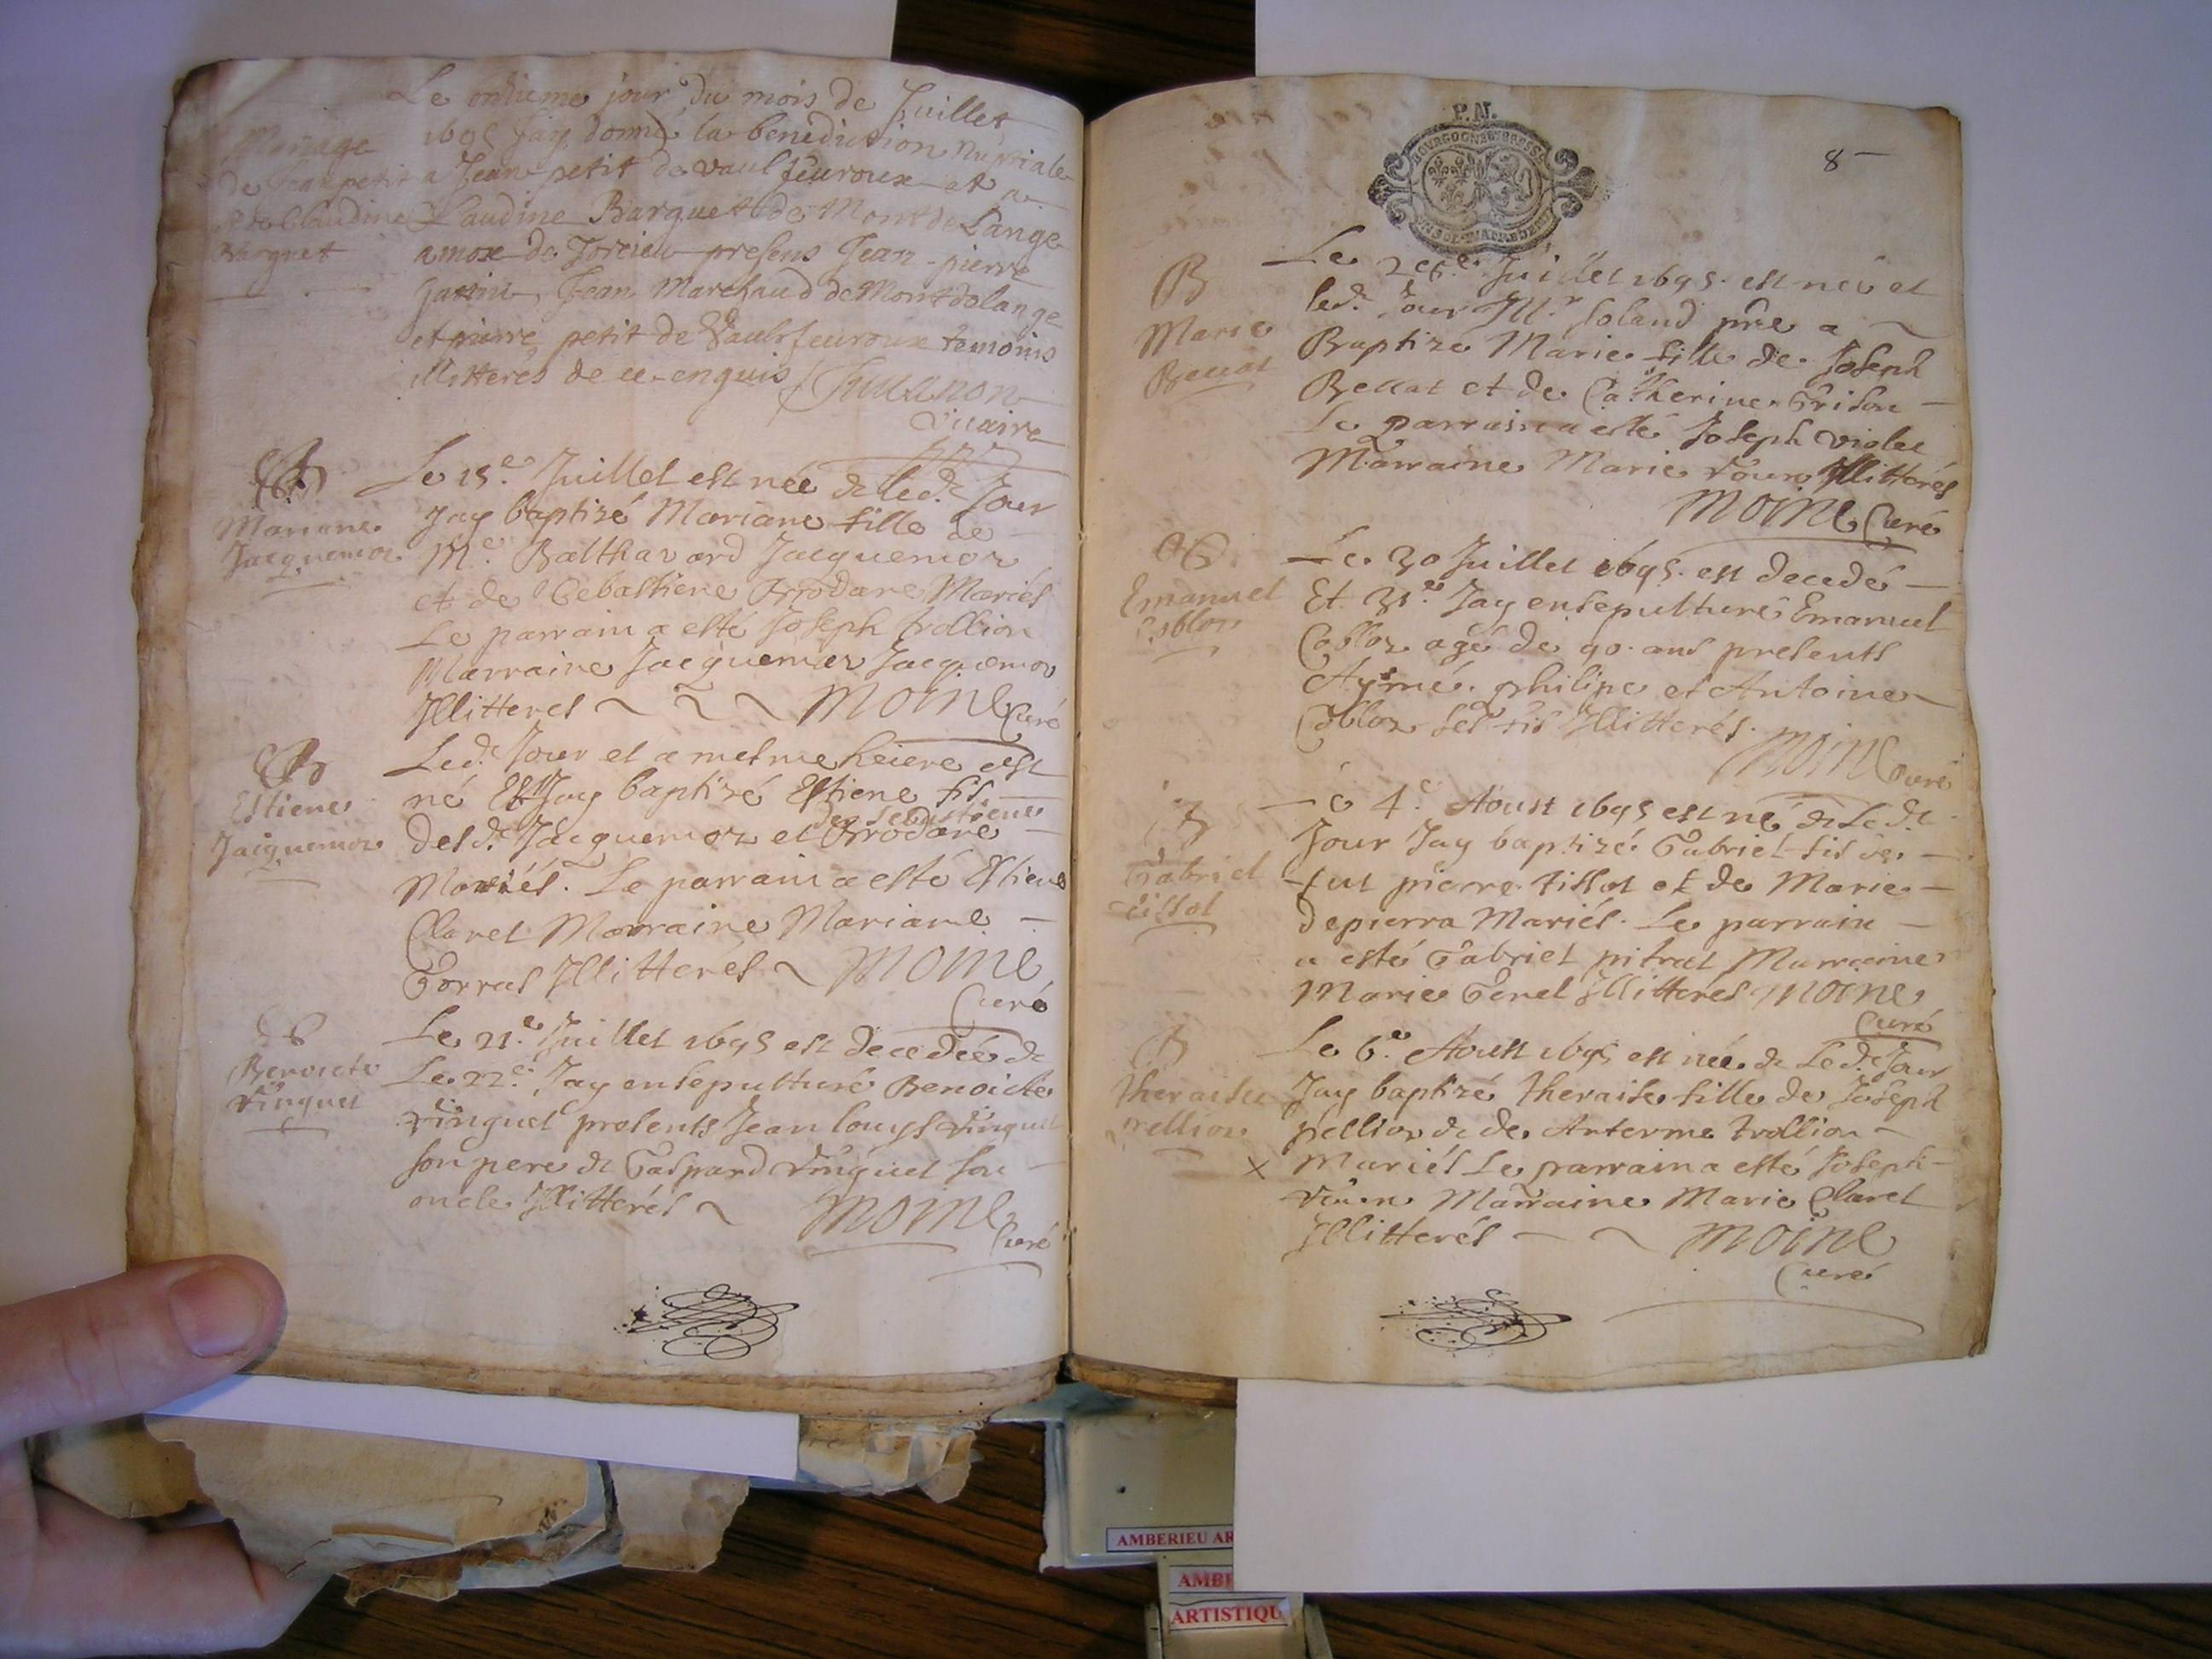 Le onzieme jour du mois de Juillet
1695 Jay donné la benediction nuptiale
a Jean petit de vaul feuroux et a
Claudine Barguet de Mont de Lange
amox de Torcieu presens Jean-pierre
Jean Marchand de Montdelange
et pierre petit de Vaulxfeuroux temoins
illitteres de ce enquis
vicaire
Mariage
de Jean petit
et de Claudine
Barguet
B
Mariane
Jacquemoz
Le 15.e Juillet est née & led.t Jour
Jay baptizé Mariane fille de
M.e Balthazard Jacquemoz
et de Sebastiene Orrodane Mariés
Le parrain a esté Joseph trollion
Marraine Jacquemaz Jacquemoz
Illitteres MOINE Curé
B
Estiene
Jacquemoz
Led.t Jour et a mesme heure est
né Et Jay baptizé Estiene fils
de Sebastiene
desd.t Jacquemoz et Orrodane
Mariés. Le parrain a esté Estiene
Claret Marraine Mariane
Gorras Illitterés MOINE
Curé
Benoicte
vinguet
Le 21.e Juillet 1695 est decedée &
Le 22.e Jay ensepulturé Benoicte
vinguet presents Jean louys vinguet
son pere & Gaspard vinguet son
oncle Illitterés MOINE
Curé
P.N.
BOURGOGNE ET BRESSE
8
B
Marie
Bellat
Le 26.e Juillet 1695. est née et
led.t Jour M.r Soland pre a
Baptizé Marie fille de Joseph
Bellat et de Catherine Grison
Le parrain a esté Joseph violet
Marraine Marie Illitterés
MOINE Curé
Emanuel
Cobloz
Le 30 Juillet 1695. est decedé
Et 31.e Jay ensepulturé Emanuel
Cobloz agé de 90. ans presents
Aymé. philipe et Antoine
Cobloz ses fils Illitterés.
MOINE Curé
B
Gabriel
tissot
Le 4.e Aoust 1695 est né & Led.t
Jour Jay baptizé Gabriel fils de
feu pierre tissot et de Marie
depierra Mariés. Le parrain
a esté Gabriel pitrat Marraine
Marie Genet Illitterés MOINE
Curé
B
theraise
pellion
Le 6.e Aoust 1695 est née & Led.t Jour
Jay baptizé theraise fille de Joseph
pellion & de Anterme trollion
x Mariés Le parrain a esté Joseph
Marraine Marie Claret
Illitterés MOINE
Curé
AMBERIEU AR
AMBE
ARTISTIQU